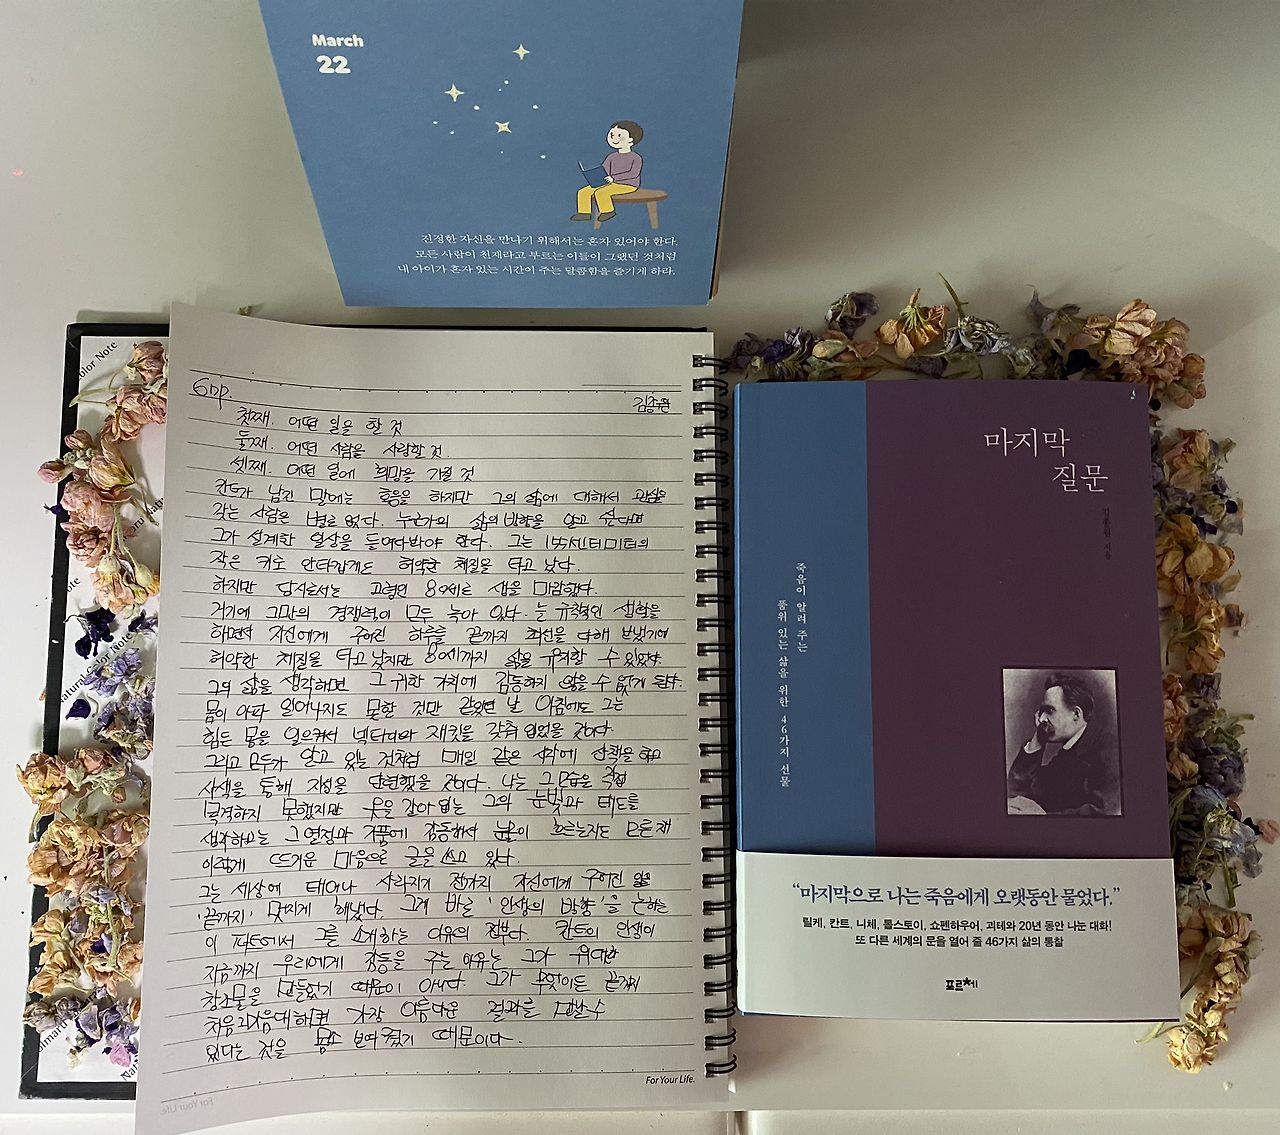 March
22
진정한 자신을 만나기 위해서는 혼자 있어야 한다.
모든 사람이 천재라고 부르는 이들이 그랬던 것처럼
내 아이가 혼자 있는 시간이 주는 달콤함을 즐기게 하라.
Color Note
Natural Color Note
67p.
김종원
첫째. 어떤 일을 할 것
둘째. 어떤 사람을 사랑할 것.
셋째. 어떤 일에 희망을 가질 것
칸트가 남긴 말에는 호응을 하지만 그의 삶에 대해서 관심을
갖는 사람은 별로 없다. 누군가의 삶의 방향을 알고 싶다면
그가 설계한 일상을 들여다봐야 한다. 그는 155센티미터의
작은 키와 안타깝게도 허약한 체질을 타고 났다.
하지만 당시로서는 고령인 80세로 삶을 마감했다.
거기에 그만의 경쟁력이 모두 녹아 있다. 늘 규칙적인 생활을
하면서 자신에게 주어진 하루를 끝까지 최선을 다해 보냈기에
허약한 체질을 타고 났지만 80세까지 삶을 유지할 수 있었다.
그의 삶을 생각하면 그 귀한 가치에 감동하지 않을 수 없게 된다.
몸이 아파 일어나지도 못할 것만 같았던 날 아침에도 그는
힘든 몸을 일으켜서 넥타이와 재킷을 갖춰 입었을 것이다.
그리고 모두가 알고 있는 것처럼 매일 같은 시각에 산책을 하고
사색을 통해 지성을 단련했을 것이다. 나는 그 모습을 직접
목격하지 못했지만 옷을 갈아 입는 그의 눈빛과 태도를
생각하고는 그 열정과 기품에 감동해서 눈물이 흐르는지도 모른 채
이렇게 뜨거운 마음으로 글을 쓰고 있다.
그는 세상에 태어나 사라지기 전까지 자신에게 주어진 일을
'끝까지' 멋지게 해냈다. 그게 바로 '인생의 방향'을 논하는
이 파트에서 그를 소개하는 이유의 전부다. 칸트의 인생이
지금까지 우리에게 감동을 주는 이유는 그가 위대한
창조물을 만들었기 때문이 아니다. 그가 무엇이든 끝까지
처음 마음 대하면 가장 아름다운 결과를 만날 수
있다는 것을 몸소 보여줬기 때문이다.
For Your Life.
마지막
질문
김종원 지음
죽음이 알려 주는
품위 있는 삶을 위한 46가지 선물
“마지막으로 나는 죽음에게 오랫동안 물었다.”
릴케, 칸트, 니체, 톨스토이, 쇼펜하우어, 괴테와 20년 동안 나눈 대화!
또 다른 세계의 문을 열어 줄 46가지 삶의 통찰
포르체